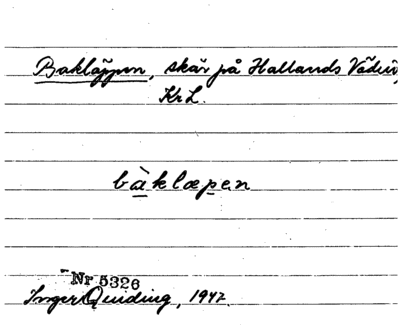 Bakläppen, skär på Hallands Väderö,
Kr L.
bàklæpen
Nr 5326
Inger Quiding, 1947.